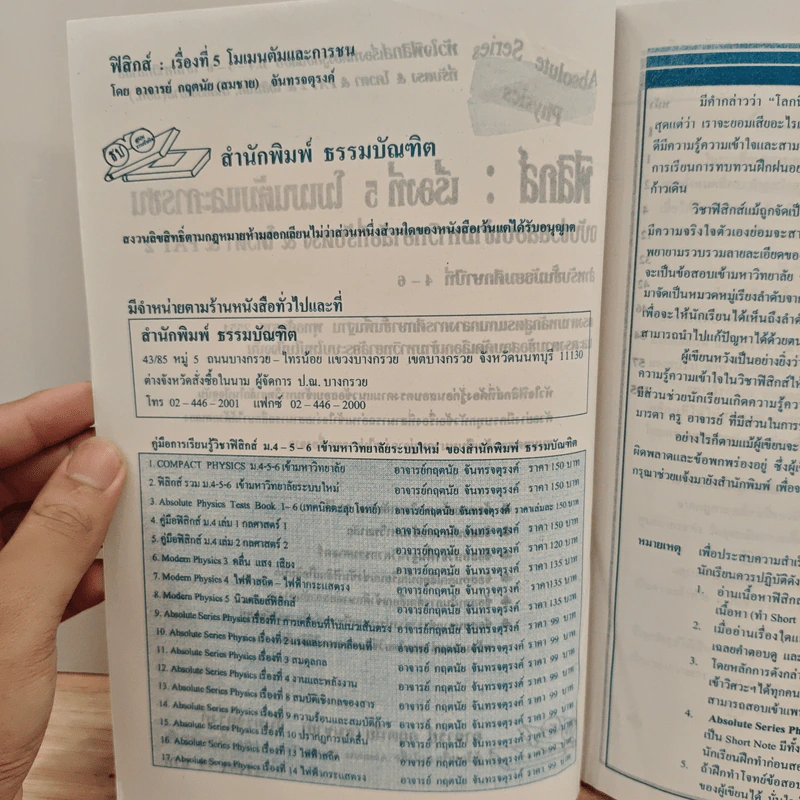 ฟิสิกส์ : เรื่องที่ 5 โมเมนตัมและการชน
โดย อาจารย์ กฤตนัย (สมชาย) จันทรจตุรงค์
สำนักพิมพ์ ธรรมบัณฑิต
สงวนลิขสิทธิ์ตามกฎหมายห้ามลอกเลียนไม่ว่าส่วนหนึ่งส่วนใดของหนังสือเว้นแต่ได้รับอนุญาต
มีจำหน่ายตามร้านหนังสือทั่วไปและที่
สำนักพิมพ์ ธรรมบัณฑิต
43/85 หมู่ 5 ถนนบางกรวย - ไทรน้อย แขวงบางกรวย เขตบางกรวย จังหวัดนนทบุรี 11130
ต่างจังหวัดสั่งซื้อในนาม ผู้จัดการ ป.ณ. บางกรวย
โทร 02-446-2001 แฟกซ์ 02-446-2000
คู่มือการเรียนรู้วิชาฟิสิกส์ ม.4-5-6 เข้ามหาวิทยาลัยระบบใหม่ ของสำนักพิมพ์ ธรรมบัณฑิต
1. COMPACT PHYSICS ม.4-5-6 เข้ามหาวิทยาลัย อาจารย์กฤตนัย จันทรจตุรงค์ ราคา 150 บาท
2. ฟิสิกส์ รวม ม.4-5-6 เข้ามหาวิทยาลัยระบบใหม่ อาจารย์กฤตนัย จันทรจตุรงค์ ราคา 150 บาท
3. Absolute Physics Tests Book 1-6 (เทคนิคตะลุยโจทย์) อาจารย์กฤตนัย จันทรจตุรงค์ ราคาเล่มละ 150 บาท
4. คู่มือฟิสิกส์ ม.4 เล่ม 1 กลศาสตร์ 1 อาจารย์กฤตนัย จันทรจตุรงค์ ราคา 150 บาท
5. คู่มือฟิสิกส์ ม.4 เล่ม 2 กลศาสตร์ 2 อาจารย์กฤตนัย จันทรจตุรงค์ ราคา 120 บาท
6. Modern Physics 3 คลื่น แสง เสียง อาจารย์กฤตนัย จันทรจตุรงค์ ราคา 135 บาท
7. Modern Physics 4 ไฟฟ้าสถิต-ไฟฟ้ากระแสตรง อาจารย์กฤตนัย จันทรจตุรงค์ ราคา135 บาท
8. Modern Physics 5 นิวเคลียส์ฟิสิกส์ อาจารย์กฤตนัย จันทรจตุรงค์ ราคา 135 บาท
9. Absolute Series Physics เรื่องที่1 การเคลื่อนที่ในแนวเส้นตรง อาจารย์กฤตนัย จันทรจตุรงค์ ราคา 99 บาท
10. Absolute Series Physics เรื่องที่ 2 แรงและการเคลื่อนที่ อาจารย์กฤตนัย จันทรจตุรงค์ ราคา 99 บาท
11. Absolute Series Physics เรื่องที่ 3 สมดุลกล อาจารย์ กฤตนัย จันทรจตุรงค์ ราคา 99 บาท
12. Absolute Series Physics เรื่องที่ 4 งานและพลังงาน อาจารย์ กฤตนัย จันทรจตุรงค์ ราคา 99 บาท
13. Absolute Series Physics เรื่องที่ 8 สมบัติเชิงกลของสาร อาจารย์ กฤตนัย จันทรจตุรงค์ ราคา 99 บาท
14. Absolute Series Physics เรื่องที่ 9 ความร้อนและสมบัติก๊าซ อาจารย์ กฤตนัย จันทรจตุรงค์ ราคา 99 บาท
15. Absolute Series Physics เรื่องที่ 10 ปรากฏการณ์คลื่น อาจารย์ กฤตนัย จันทรจตุรงค์ ราคา 99 บาท
16. Absolute Series Physics เรื่องที่ 13 ไฟฟ้าสถิต อาจารย์ กฤตนัย จันทรจตุรงค์ ราคา 99 บาท
17. Absolute Series Physics เรื่องที่ 14 ไฟฟ้ากระแสตรง อาจารย์ กฤตนัย จันทรจตุรงค์ ราคา 99 บาท
มีคำกล่าวว่า "โลกนี
สุดแต่ว่า เราจะยอมเสียอะไรเ
ดีมีความรู้ความเข้าใจและสาม
การเรียนการทบทวนฝึกฝนอย
ก้าวเดิน
วิชาฟิสิกส์แม้ถูกจัดเป็
มีความจริงใจตัวเองย่อมจะสา
พยายามรวบรวมรายละเอียดขอ
จะเป็นข้อสอบเข้ามหาวิทยาลัย
มาจัดเป็นหมวดหมู่เรียงลำดับจา
เพื่อจะให้นักเรียนได้เห็นถึงลำดั
สามารถนำไปแก้ปัญหาได้ด้วยตน
ผู้เขียนหวังเป็นอย่างยิ่งว่
ความรู้ความเข้าใจในวิชาฟิสิกส์ให้
มีส่วนช่วยนักเรียนเกิดความรู้ควา
มารดา ครู อาจารย์ ที่มีส่วนในการ
อย่างไรก็ตามแม้ผู้เขียนจะ
ผิดพลาดและข้อพกพร่องอยู่ ซึ่งผู้เ
กรุณาช่วยแจ้งมายังสำนักพิมพ์ เพื่อจะ
หมายเหตุ เพื่อประสบความสำเร็
นักเรียนควรปฏิบัติดัง
1. อ่านเนื้อหาฟิสิกส์
เนื้อหา (ทำ Short
2. เมื่ออ่านเรื่องใดแ
เฉลยคำตอบดู และ
3. โดยหลักการดังกล่า
เข้าวิศวะฯได้ทุกคน
สามารถสอบเข้าแพท
4. Absolute Series Ph
เป็น Short Note มีทั้ง
นักเรียนฝึกทำก่อนสอ
5. ถ้าฝึกทำโจทย์ข้อสอ
ของผู้เขียนได้